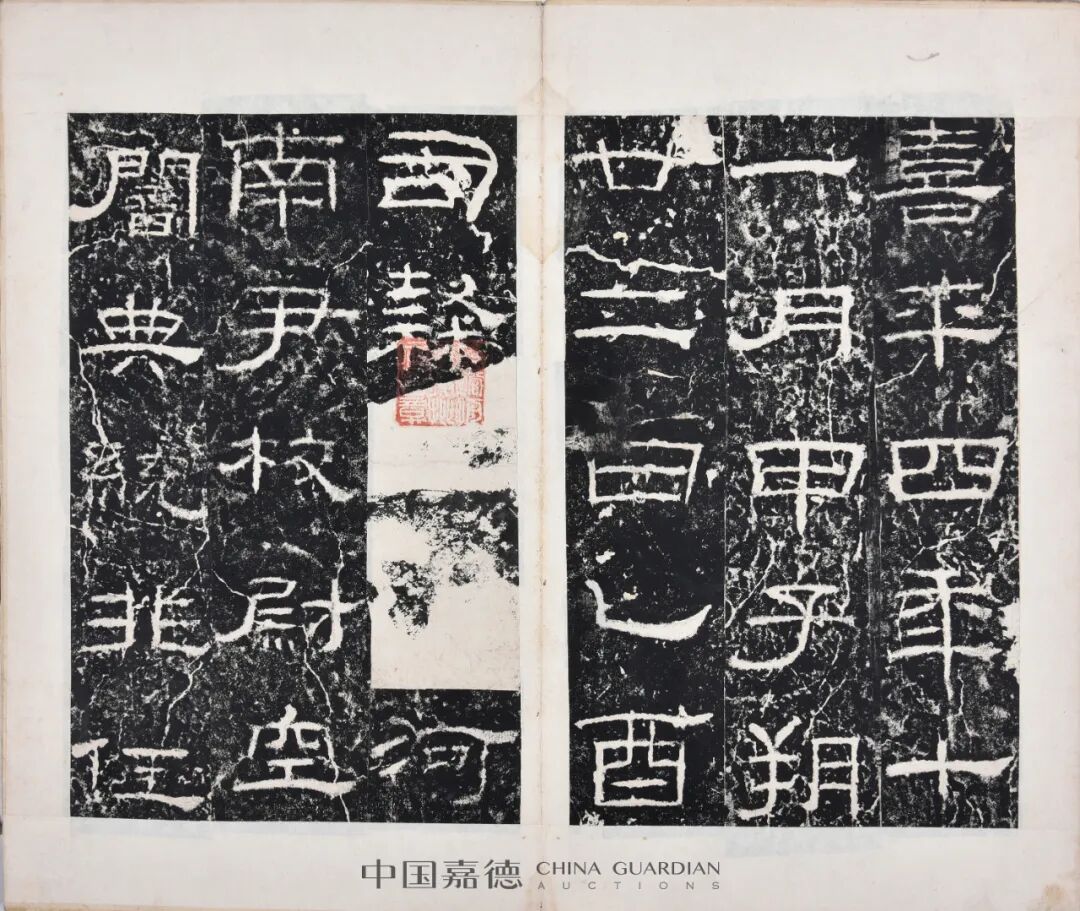 熹平四年十
一月甲子朔
廿二日乙酉
司隸河
南尹校尉空
闇典統非任
中国嘉德 CHINA GUARDIAN
AUCTIONS